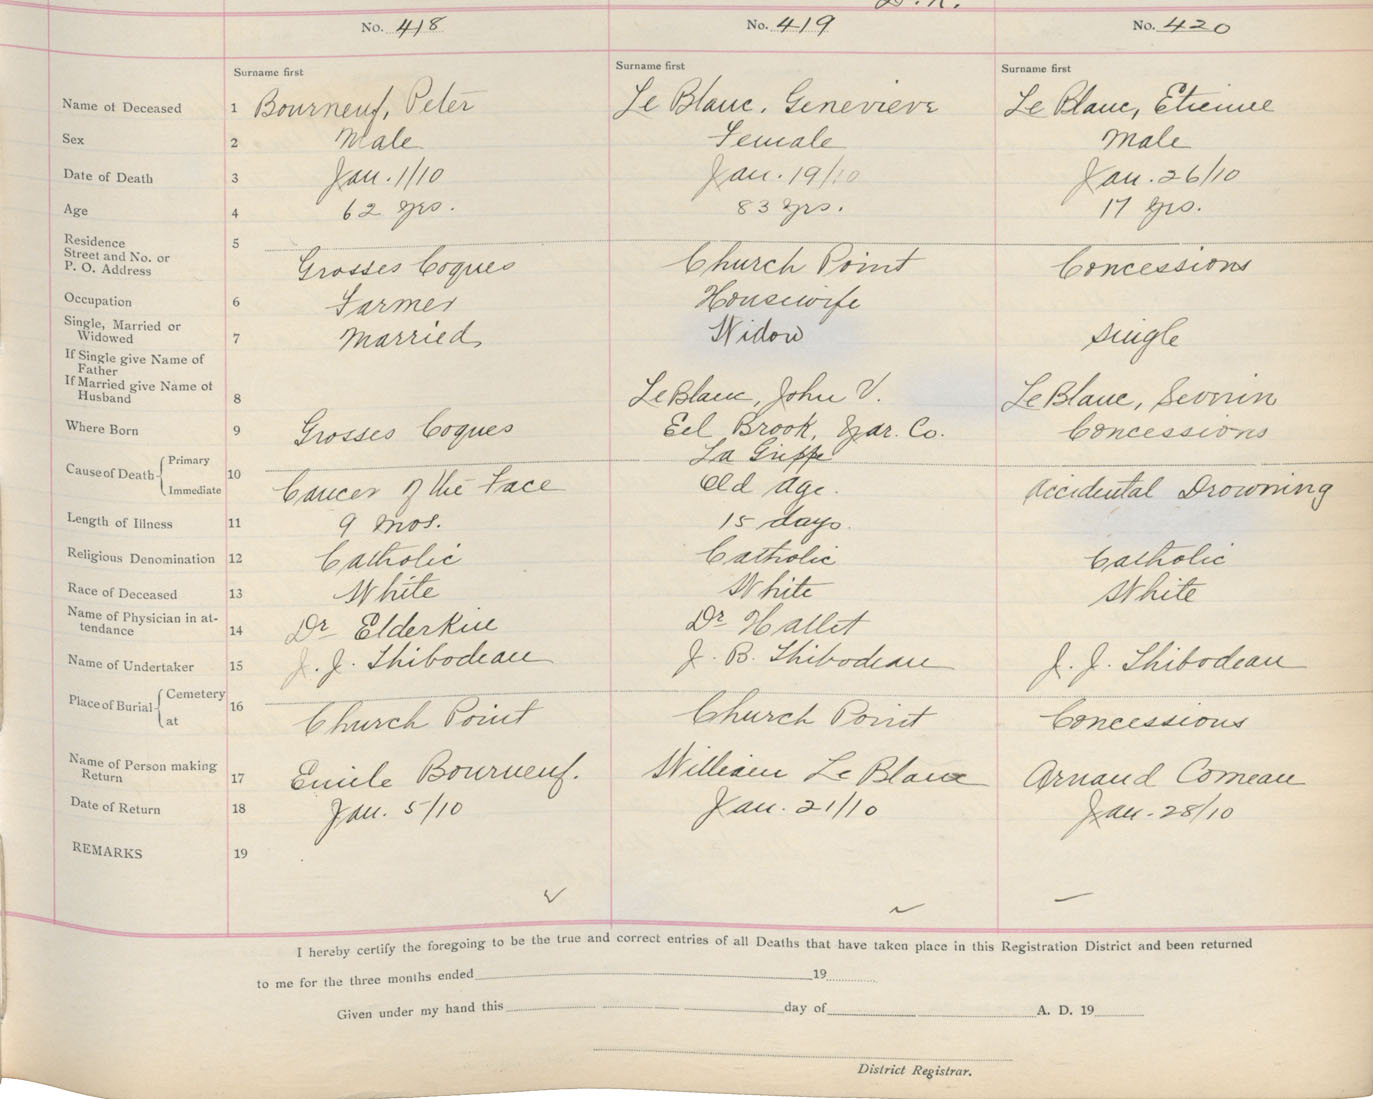 No. 418 No. 419 No. 420
Surname first Surname first Surname first
Name of Deceased 1 Bourneuf, Peter Le Blanc, Genevieve Le Blanc, Etienne
Sex 2 Male Female Male
Date of Death 3 Jan. 1/10 Jan. 19/10 Jan. 26/10
Age 4 62 yrs. 83 yrs. 17 yrs.
Residence 5
Street and No. or
P. O. Address Grosses Coques Church Point Concessions
Occupation 6 Farmer Housewife
Single, Married or
Widowed 7 Married Widow Single
If Single give Name of
Father
If Married give Name of
Husband 8 LeBlanc, John V. LeBlanc,
Where Born 9 Grosses Coques Eel Brook, Yar. Co. Concessions
Cause of Death { Primary 10 La Grippe
Immediate Cancer of the Face Old age. Accidental Drowning
Length of Illness 11 9 mos. 15 days.
Religious Denomination 12 Catholic Catholic Catholic
Race of Deceased 13 White White White
Name of Physician in at-
tendance 14 Dr Elderkin Dr Hallet
Name of Undertaker 15 J. J. Thibodeau J. B. Thibodeau J. J. Thibodeau
Place of Burial { Cemetery 16
at Church Point Church Point Concessions
Name of Person making
Return 17 Emile Bourneuf. William Le Blanc Arnaud Comeau
Date of Return 18 Jan. 5/10 Jan. 21/10 Jan. 28/10
REMARKS 19
I hereby certify the foregoing to be the true and correct entries of all Deaths that have taken place in this Registration District and been returned
to me for the three months ended 19
Given under my hand this day of A. D. 19
District Registrar.